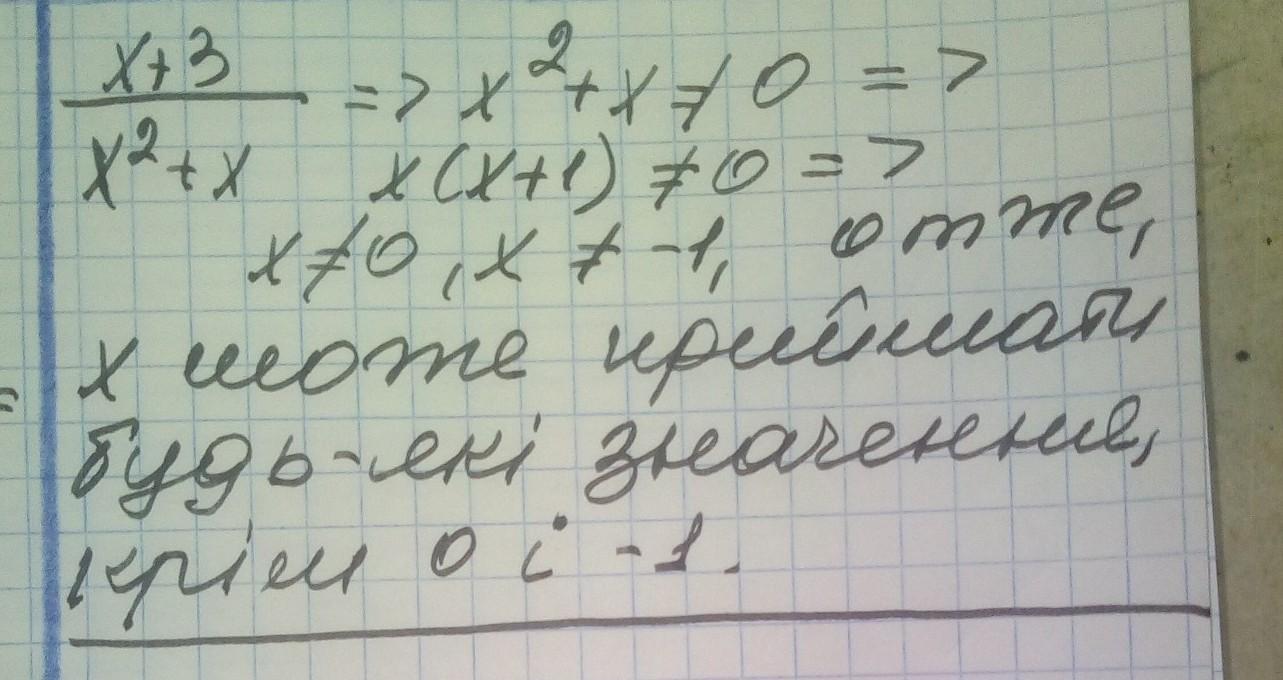 x+3
x²+x => x²+x ≠ 0 =>
x(x+1) ≠ 0 =>
x ≠ 0, x ≠ -1, отже,
x може приймати
будь-які значення,
крім 0 і -1.